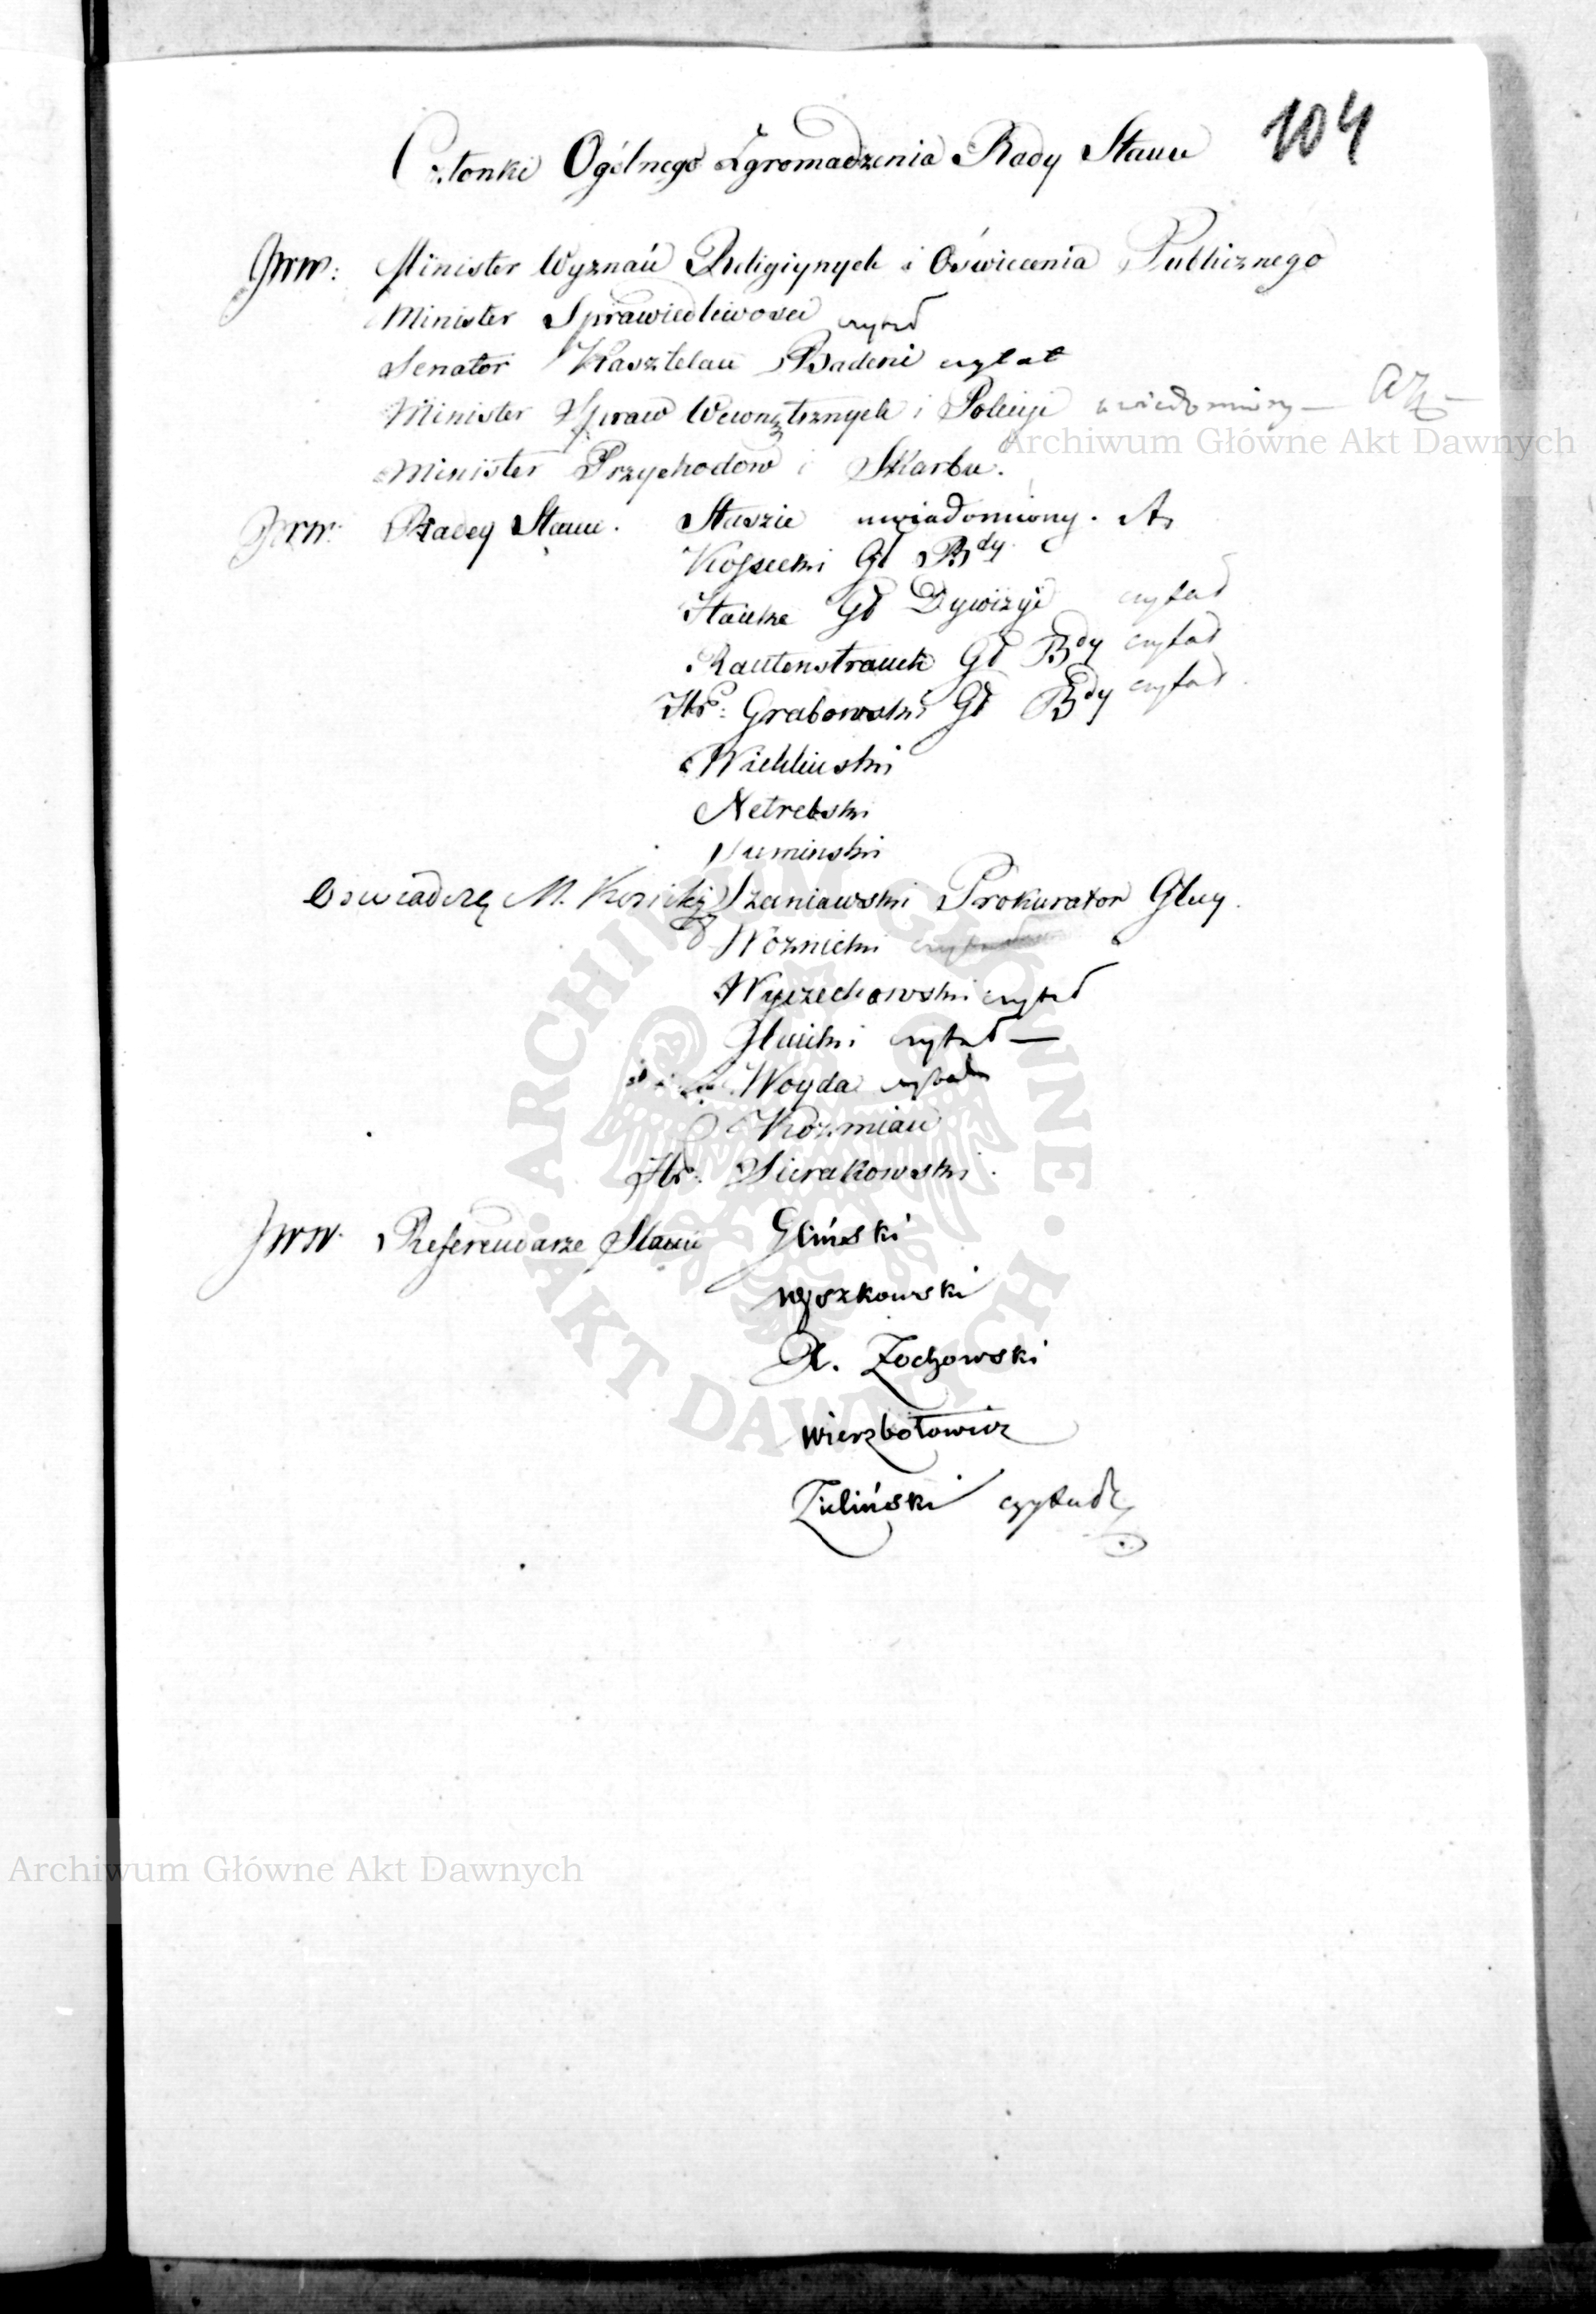 104
Członki Ogólnego Zgromadzenia Rady Stanu
JWW: Minister Wyznań Religiynych i Oświecenia Publicznego
Minister Sprawiedliwości czytał
Senator Kasztelan Badeni czytał
Minister Spraw Wewnętrznych i Policyi uwiadomiony —
Archiwum Główne Akt Dawnych
Minister Przychodów i Skarbu.
JWW. Radcy Stanu. Staszic uwiadomiony.
Kossecki Gł Bdy.
Hauke Gł Dywizyi czytał
Rautenstrauch Gł Bdy czytał
Hr: Grabowski Gł Bdy czytał
Wichliński
Netrebski
Tumiński
Szaniawski Prokurator Glny.
Woźnicki
Wyczechowski czytał
Gliwicki czytał —
Woyda czytał
Kozmian
Hr: Sierakowski.
JWW. Referendarze Stanu Gliński
Wyszkowski
X. Żochowski
Wierzbołowicz
Zieliński czytał
ARCHIWUM GŁÓWNE
AKT DAWNYCH
Archiwum Główne Akt Dawnych